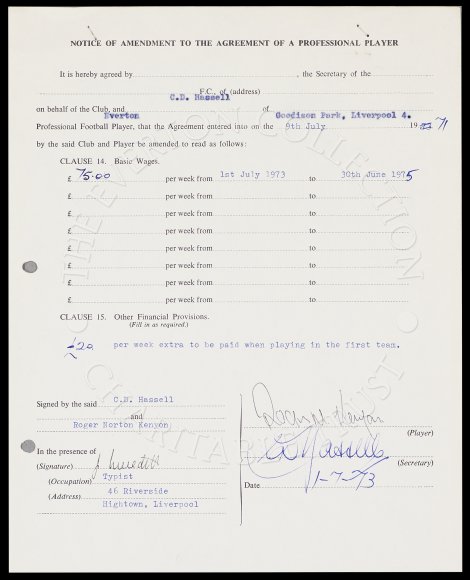 NOTICE OF AMENDMENT TO THE AGREEMENT OF A PROFESSIONAL PLAYER
It is hereby agreed by , the Secretary of the
F.C., of (address)
C.D. Hassell
on behalf of the Club, and of
Everton Goodison Park, Liverpool 4.
Professional Football Player, that the Agreement entered into on the 9th July 19 71
by the said Club and Player be amended to read as follows:
CLAUSE 14. Basic Wages.
£ 75.00 per week from 1st July 1973 to 30th June 1975
£ per week from to
£ per week from to
£ per week from to
£ per week from to
£ per week from to
£ per week from to
£ per week from to
CLAUSE 15. Other Financial Provisions.
(Fill in as required.)
£20 per week extra to be paid when playing in the first team.
Signed by the said C.D. Hassell
and
Roger Horton Kenyon
Roger H Kenyon
(Player)
In the presence of
C D Hassell
(Signature) J. Meredith (Secretary)
(Occupation) Typist
Date 1-7-73
(Address) 46 Riverside
Hightown, Liverpool
THE EVERTON COLLECTION
CHARITABLE TRUST